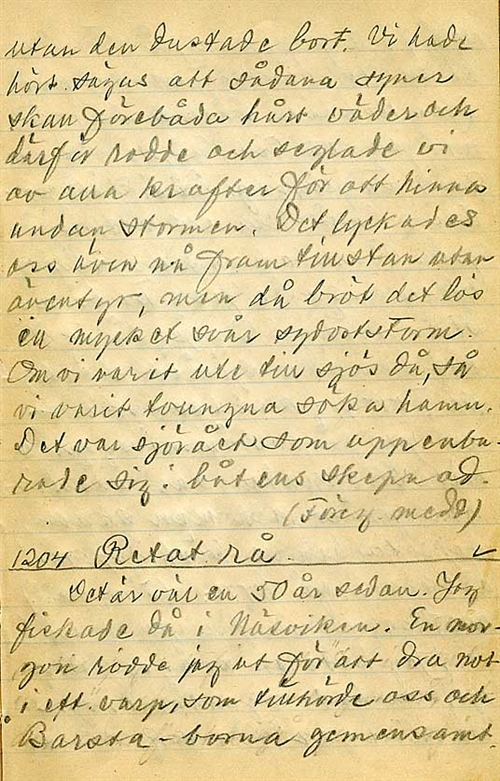 utan den dustade bort. Vi hade
hört sägas att sådana syner
skall förebåda hårt väder och
därför rodde och seglade vi
av alla krafter för att hinna
undan stormen. Det lyckades
oss även nå fram till stan utan
äventyr, men då bröt det lös
en mycket svår sydoststorm.
Om vi varit ute till sjös då, så
vi varit tvungna söka hamn.
Det var sjörået som uppenba-
rade sig i båtens skepnad.
(Föreg. medd)
1204 Retat rå.
Det är väl en 50 år sedan. Jag
fiskade då i Näsviken. En mor-
gon rodde jag ut för att dra not
i ett varp, som tillhörde oss och
Barsta-borna gemensamt.